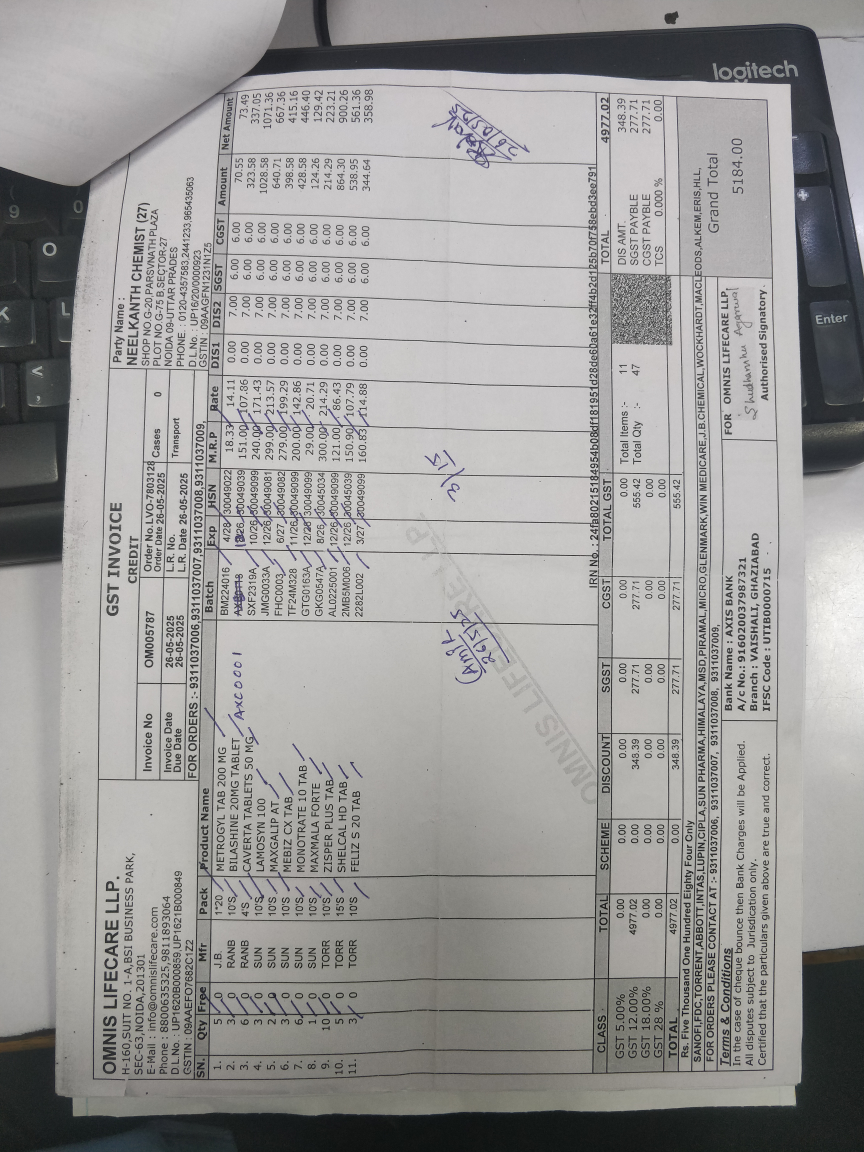 logitech
Enter
OMNIS LIFECARE LLP.
H-160,SUIT NO. 1-A,BSI BUSINESS PARK,
SEC-63,NOIDA,201301
E-Mail : info@omnislifecare.com
Phone : 8800635325,9811893064
D.L.No. : UP1620B000859,UP1621B000849
GSTIN : 09AAEFO7682C1Z2
GST INVOICE
CREDIT
Invoice No OM005787 Order No.LVO-7803128
Order Date 26-05-2025 Cases 0
Invoice Date 26-05-2025 L.R. No. Transport
Due Date 26-05-2025 L.R. Date 26-05-2025
FOR ORDERS :- 9311037006,9311037007,9311037008,9311037009,
Party Name :
NEELKANTH CHEMIST (27)
SHOP NO.G-20,PARSVNATH PLAZA
PLOT NO.G-75 B,SECTOR-27
NOIDA 09-UTTAR PRADES
PHONE. : 0120-4357583,2441233,965435063
D.L.No. : UP16/20/0000923
GSTIN : 09AAGFN1231N1Z5
SN. Qty Free Mfr Pack Product Name Batch Exp HSN M.R.P Rate DIS1 DIS2 SGST CGST Amount Net Amount
1. 5 0 J.B. 1*20 METROGYL TAB 200 MG BM224016 4/28 30049022 18.33 14.11 0.00 7.00 6.00 6.00 70.55 73.49
2. 3 0 RANB 10'S BILASHINE 20MG TABLET AXC0001 30049039 151.00 107.86 0.00 7.00 6.00 6.00 323.58 337.05
3. 6 0 RANB 4'S CAVERTA TABLETS 50 MG SXF2319A 10/26 30049099 240.00 171.43 0.00 7.00 6.00 6.00 1028.58 1071.36
4. 3 0 SUN 10'S LAMOSYN 100 JMG0033A 12/26 30049081 299.00 213.57 0.00 7.00 6.00 6.00 640.71 667.36
5. 2 0 SUN 10'S MAXGALIP AT FHC0003 6/27 30049082 279.00 199.29 0.00 7.00 6.00 6.00 398.58 415.16
6. 3 0 SUN 10'S MEBIZ CX TAB TF24M328 11/26 30049099 200.00 142.86 0.00 7.00 6.00 6.00 428.58 446.40
7. 6 0 SUN 10'S MONOTRATE 10 TAB GTG0163A 12/26 30049099 29.00 20.71 0.00 7.00 6.00 6.00 124.26 129.42
8. 1 0 SUN 10'S MAXMALA FORTE GKG0547A 8/26 30045034 300.00 214.29 0.00 7.00 6.00 6.00 214.29 223.21
9. 10 0 TORR 10'S ZISPER PLUS TAB AL0225001 12/26 30049099 121.00 86.43 0.00 7.00 6.00 6.00 864.30 900.26
10. 5 0 TORR 15'S SHELCAL HD TAB 2MB5M006 12/26 30045039 150.90 107.79 0.00 7.00 6.00 6.00 538.95 561.36
11. 3 0 TORR 10'S FELIZ S 20 TAB 2282L002 3/27 30049099 160.83 114.88 0.00 7.00 6.00 6.00 344.64 358.98
26/5/25
26/05/25
OMNIS LIFECARE LLP.
IRN No. : 24fa80215184954b08df181951d28de60a61e32ff4b2d125b70f758ebd3ee791
CLASS TOTAL SCHEME DISCOUNT SGST CGST TOTAL GST
GST 5.00% 0.00 0.00 0.00 0.00 0.00 0.00
GST 12.00% 4977.02 0.00 348.39 277.71 277.71 555.42
GST 18.00% 0.00 0.00 0.00 0.00 0.00 0.00
GST 28 % 0.00 0.00 0.00 0.00 0.00 0.00
TOTAL 4977.02 0.00 348.39 277.71 277.71 555.42
Total Items :- 11
Total Qty :- 47
TOTAL 4977.02
DIS AMT. 348.39
SGST PAYBLE 277.71
CGST PAYBLE 277.71
TCS 0.000 % 0.00
Grand Total
5184.00
Rs. Five Thousand One Hundred Eighty Four Only
SANOFI,FDC,TORRENT,ABBOTT,INTAS,LUPIN,CIPLA,SUN PHARMA,HIMALAYA,MSD,PIRAMAL,MICRO,GLENMARK,WIN MEDICARE,J.B.CHEMICAL,WOCKHARDT,MACLEODS,ALKEM,ERIS,HLL,
FOR ORDERS PLEASE CONTACT AT :- 9311037006, 9311037007, 9311037008, 9311037009,
Terms & Conditions
In the case of cheque bounce then Bank Charges will be Applied.
All disputes subject to Jurisdication only.
Certified that the particulars given above are true and correct.
Bank Name : AXIS BANK
A/c No.: 916020037987321
Branch : VAISHALI, GHAZIABAD
IFSC Code : UTIB0000715
FOR OMNIS LIFECARE LLP.
Shudhanshu Agarwal
Authorised Signatory.